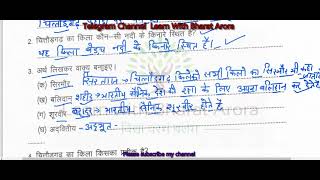 Telegram Channel Learn With Bharat Arora
2. चित्तौड़गढ़ का किला कौन-सी नदी के किनारे स्थित है?
यह किला बेड़च नदी के किनारे स्थित है।
3. अर्थ लिखकर वाक्य बनाइए।
(क) सिरमौर- सिरताज → चित्तौड़गढ़ किले को सभी किलों का सिरमौर भी कहा
(ख) बलिदान- शहीद → भारतीय सैनिक देश की रक्षा के लिए अपना बलिदान कर देते हैं
(ग) शूरवीर- बहादुर → भारतीय सैनिक शूरवीर होते हैं
(घ) अद्वितीय - अद्भुत -
Please subscribe my channel
4. चित्तौड़गढ़ का किला किसका प्रतीक है?